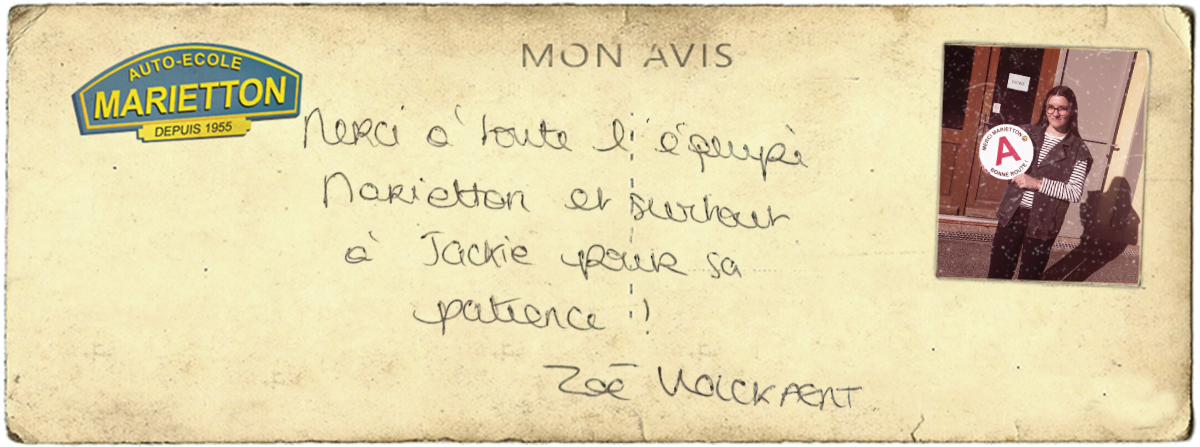 MON AVIS
AUTO-ECOLE
MARIETTON
DEPUIS 1955
Merci à toute l'équipe
Marietton et surtout
à Jackie pour sa
patience !
Zoé
MERCI MARIETTON
A
BONNE ROUTE !